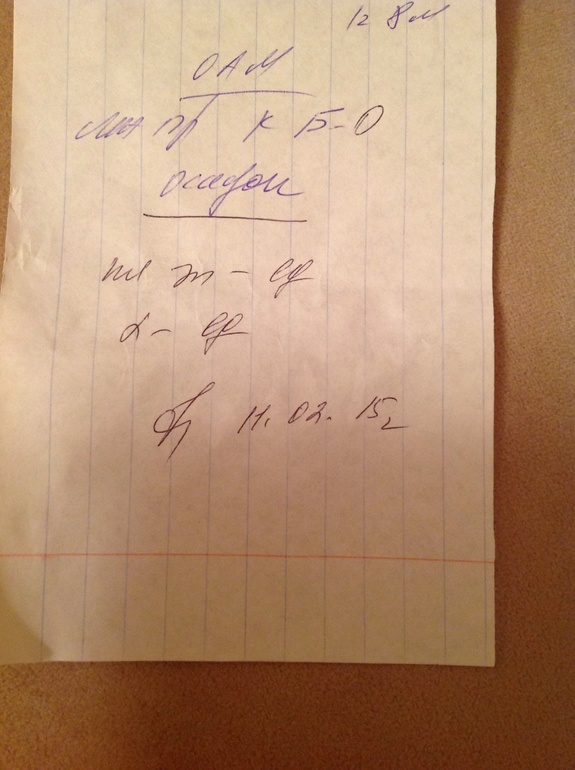 1г 8м
ОАМ
пр к Б-0
осадок
пл эп - ед
L- ед
11.02.15г